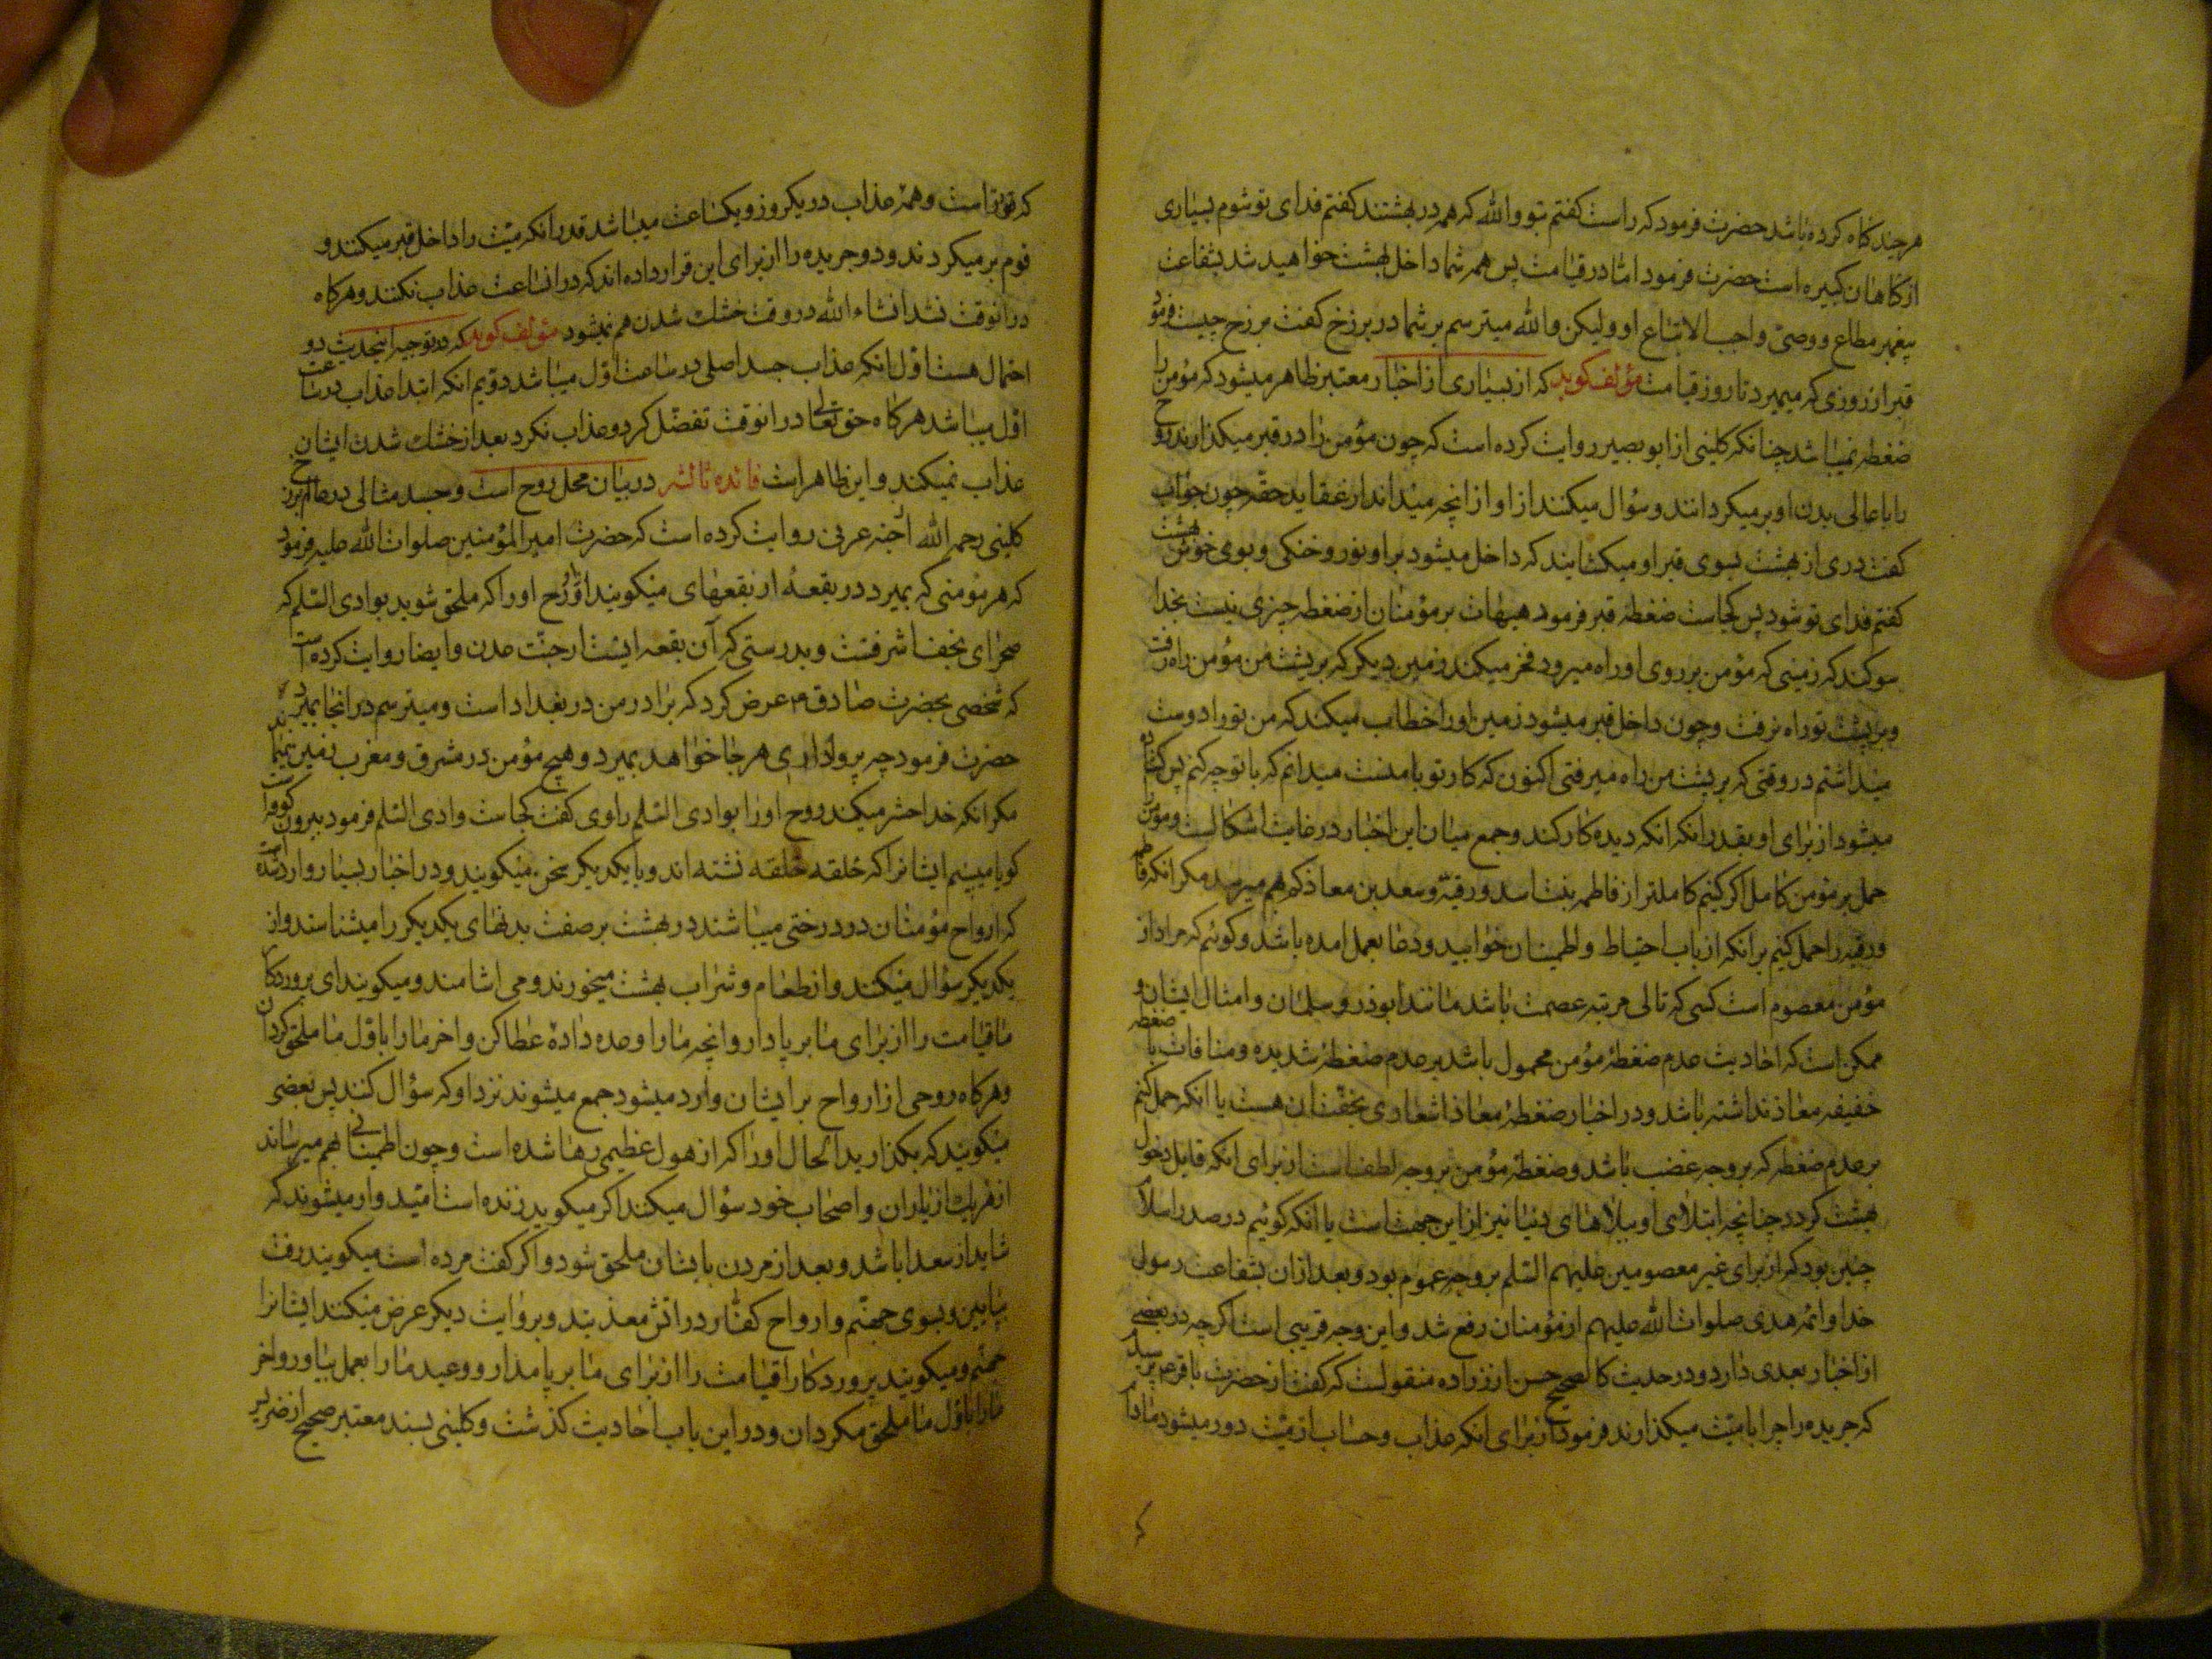 هرچند کناه کرده باشد حضرت فرمود که راست کفتم بتو والله که همه در بهشتند کفتم فدای تو شوم بسیاری
از کناهان کبیره است حضرت فرمود اما در قیامت پس همه شما داخل بهشت خواهید شد بشفاعت
پیغمبر مطاع و وصی واجب الاتباع او ولیکن والله میترسم بر شما در برزخ کفت برزخ چیست فرمود
قبر از روزی که میمیرد تا روز قیامت مؤلف کوید که از بسیاری از اخبار معتبر ظاهر میشود که مؤمن را
ضغطه نمیباشد چنانکه کلینی از ابو بصیر روایت کرده است که چون مؤمن را در قبر میکذارند روح
را باعالی بدن او بر میکردانند و سؤال میکنند از او از انچه میداند از عقاید حقه چون جواب
کفت دری از بهشت بسوی قبر او میکشایند که داخل میشود بر او نور و خنکی و بوی خوش بهشت
کفتم فدای تو شود پس کجاست ضغطه قبر فرمود هیهات بر مؤمنان از ضغطه چیزی نیست بخدا
سوکند که زمینی که مؤمن بر روی او راه میرود فخر میکند زمین دیکر که بر پشت من مؤمن راه رفت
و بر پشت تو راه نرفت و چون داخل قبر میشود زمین او را خطاب میکند که من تو را دوست
میداشتم در وقتی که بر پشت من راه میرفتی اکنون که کار تو با منست میدانم که با تو چه کنم پس کشاده
میشود از برای او بقدر انکه انکه دیده کار کند و جمع میان این اخبار در غایت اشکالست و مؤمن
حمل بر مؤمن کامل اکر کنیم کاملتر از فاطمه بنت اسد و رقیه و سعد بن معاذ کم بهم میرسد مکر انکه فاطمه
و رقیه را حمل کنیم بر انکه از باب احتیاط و اطمینان خوابید و دعا بعمل امده باشد و کوئیم که مراد از
مؤمن معصوم است کسی که تالی مرتبه عصمت باشد مانند ابوذر و سلمان و امثال ایشان و
ممکن است که احادیث عدم ضغطهٔ مؤمن محمول باشد بر عدم ضغطهٔ شدیده و منافات با ضغطه
خفیفه معاذ نداشته باشد و در اخبار ضغطهٔ معاذ اشعاری بخفت ان هست یا انکه حمل کنیم
بر عدم ضغطه که بر وجه غضب باشد و ضغطهٔ مؤمن بر وجه لطف است از برای انکه قابل دخول
بهشت کردد چنانچه ابتلای او ببلاهای دنیا نیز از این جهت است یا انکه کوئیم در صدر اسلام
چنین بود که از برای غیر معصومین علیهم السلم بر وجه عموم بود و بعد ازان بشفاعت رسول
خدا و ائمه هدی صلوات الله علیهم از مؤمنان رفع شد و این وجه قریبی است اکرچه در بعضی
از اخبار بعدی دارد و در حدیث کالصحیح حسن از زراره منقولست که کفت از حضرت باقر ع پرسیدم
که جریده را چرا با میت میکذارند فرمود از برای انکه عذاب و حساب از میت دور میشود مادام
که تر است و همهٔ عذاب در یکروز و یکساعت میباشد قدر انکه میت را داخل قبر میکنند و
قوم بر میکردند و دو جریده را از برای این قرار داده اند که در انساعت عذاب نکنند و هرکاه
در انوقت نشد انشاء الله در وقت خشک شدن هم نمیشود مؤلف کوید که در توجیه اینحدیث دو
احتمال هست اول انکه عذاب جسد اصلی در ساعت اول میباشد دویم انکه ابتدا عذاب در ساعت
اول میباشد هرکاه حق تعالی در انوقت تفضل کرد و عذاب نکرد بعد از خشک شدن ایشان
عذاب نمیکند و این ظاهر است فائده ثالثه در بیان محل روح است و جسد مثالی در عالم برزخ
کلینی رحمه الله از حبه عرنی روایت کرده است که حضرت امیر المؤمنین صلوات الله علیه فرمود
که هر مؤمنی که بمیرد در بقعهٔ از بقعهای میکویند روح او را که ملحق شوید بوادی السلم که
صحرای نجف اشرفست و بدرستی که آن بقعه ایست از جنت عدن و ایضا روایت کرده است
که شخصی بحضرت صادق ع عرض کرد که برادر من در بغداد است و میترسم در انجا بمیرد
حضرت فرمود چه پروا داری هرجا خواهد بمیرد و هیچ مؤمن در مشرق و مغرب زمین نمیماند
مکر انکه خدا حشر میکند روح او را بوادی السلم راوی کفت کجاست وادی السلم فرمود بیرون کوفه است
کویا میبینم ایشانرا که حلقه حلقه نشته اند و با یکدیکر سخن میکویند و در اخبار بسیار وارد شده است
که ارواح مؤمنان در درختی میباشند در بهشت بر صفت بدنهای یکدیکر را میشناسند و از
یکدیکر سؤال میکنند و از طعام و شراب بهشت میخورند و می اشامند و میکویند ای پروردکار
ما قیامت را از برای ما بر پا دار و انچه ما را وعده دادهٔ عطا کن و اخر ما را باول ما ملحق کردان
و هرکاه روحی از ارواح بر ایشان وارد میشود جمع میشوند نزد او که سؤال کنند پس بعضی
میکویند که بکذارید الحال او را که از هول عظیمی رها شده است و چون اطمینانی بهم میرساند
از هر یک از یاران و اصحاب خود سؤال میکنند اکر میکوید زنده است امیدوار میشوند که
شاید از سعدا باشد و بعد از مردن بایشان ملحق شود و اکر کفت مرده است میکویند رفت
بپایین و بسوی جهنم و ارواح کفار در اتش معذبند و بروایت دیکر عرض میکند ایشانرا
جهنم و میکویند پروردکارا قیامت را از برای ما بر پا مدار و وعید ما را بعمل میاور و اخر
ما را باول ما ملحق مکردان و در این باب احادیث کذشت و کلینی بسند معتبر صحیح از ضریر